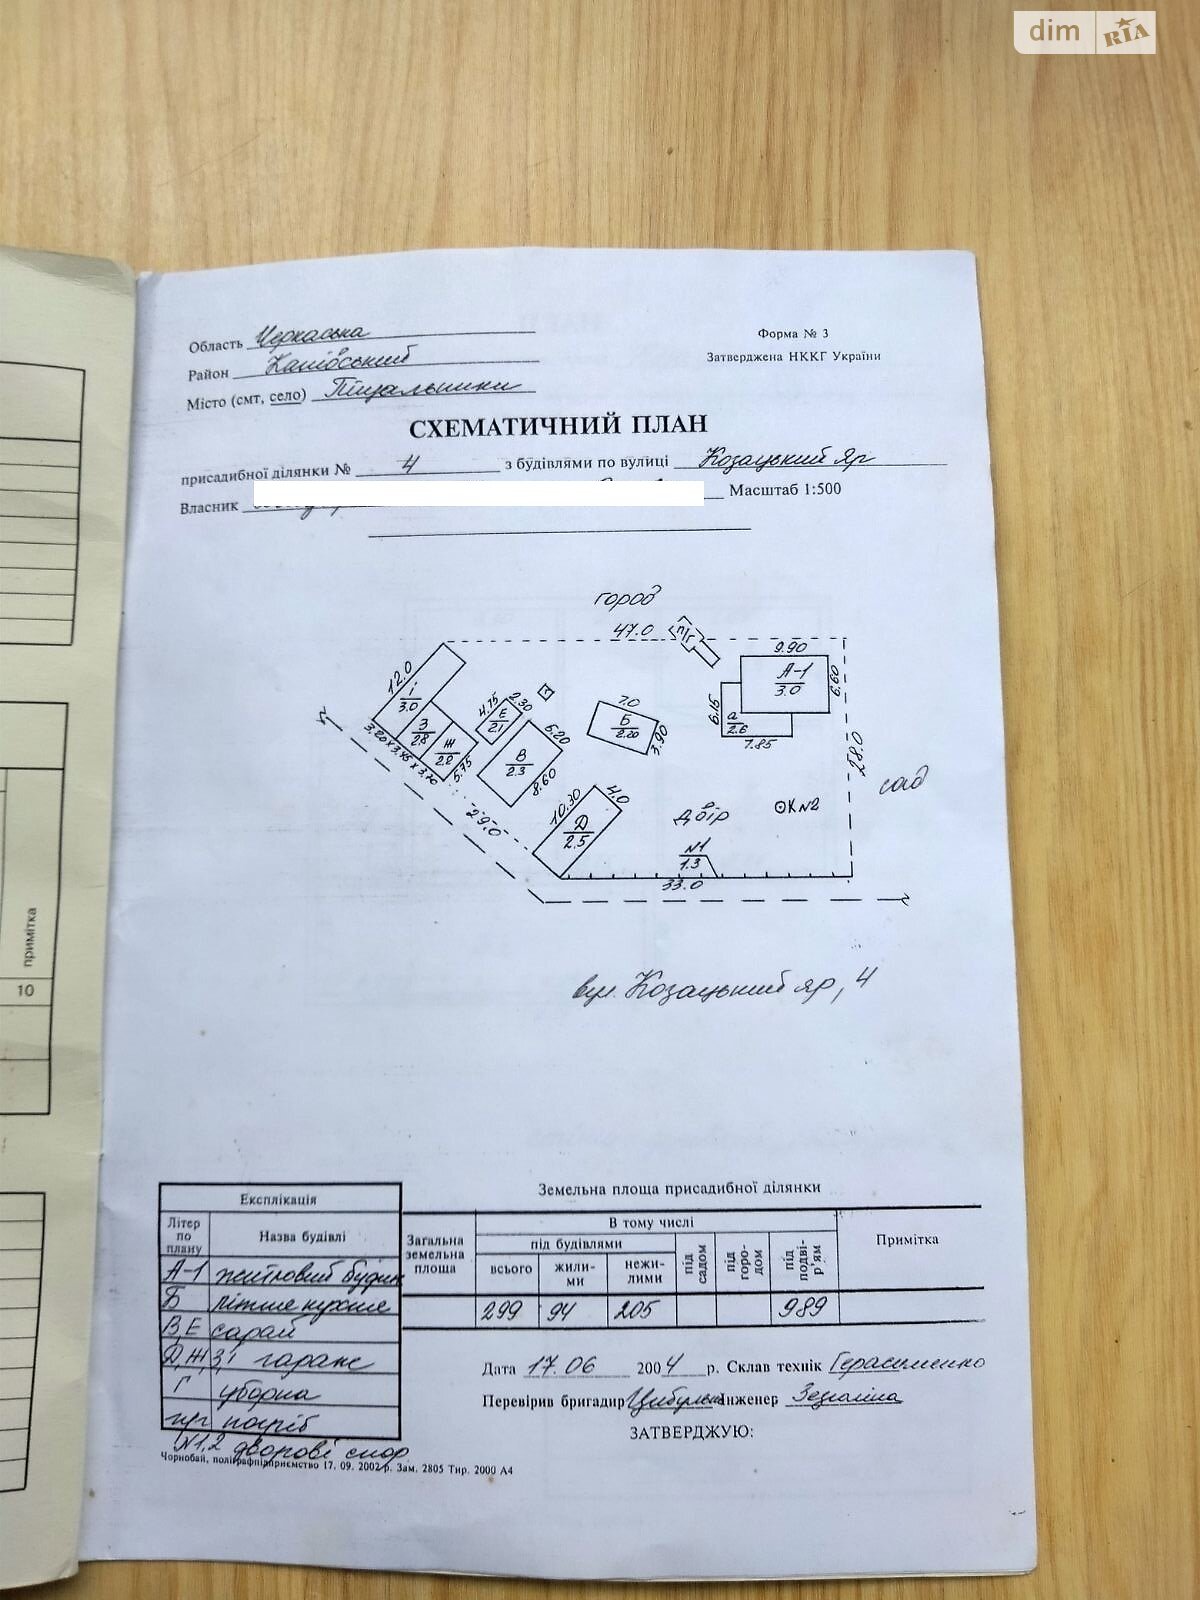 dim RIA
Область Черкаська
Форма № 3
Район Канівський
Затверджена НККГ України
Місто (смт, село) Пищальники
СХЕМАТИЧНИЙ ПЛАН
присадибної ділянки № 4 з будівлями по вулиці Козацький Яр
Власник
Масштаб 1:500
город
47.0
п/г
12.0
і
3.0
З
2.8
Ж
2.2
3.20 x 3.45 x 3.70
5.75
4.75
2.30
Е
2.1
Г
В
2.3
6.20
8.60
7.0
Б
2.20
3.90
9.90
А-1
3.0
6.60
6.15
а
2.6
7.85
28.0
сад
29.0
10.30
4.0
Д
2.5
двір
КN2
N1
1.3
33.0
вул. Козацький яр, 4
Земельна площа присадибної ділянки
Експлікація
Літер по плану
Назва будівлі
Загальна земельна площа
В тому числі
під будівлями
всього
жили-ми
нежи-лими
під садом
під горо-дом
під подві-р'ям
Примітка
А-1 житловий будин
Б літня кухня
299 94 205 989
В,Е сарай
Д,Ж,З,і гараж
Г уборна
пг погріб
N1,2 дворові спор
Дата 17.06 2004 р. Склав технік Герасименко
Перевірив бригадир Інженер
ЗАТВЕРДЖУЮ:
Чорнобай, поліграфпідприємство 17. 09. 2002 р. Зам. 2805 Тир. 2000 А4
примітка
10